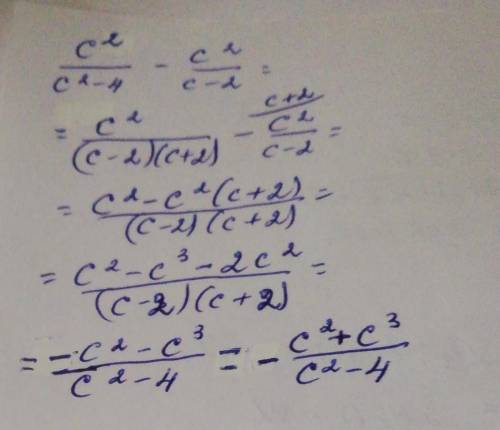 c²/(c²-4) - c²/(c-2) =
= c²/((c-2)(c+2)) - ᶜ⁺²⁄ c²/(c-2) =
= (c²-c²(c+2))/((c-2)(c+2)) =
= (c²-c³-2c²)/((c-2)(c+2)) =
= (-c²-c³)/(c²-4) = - (c²+c³)/(c²-4)